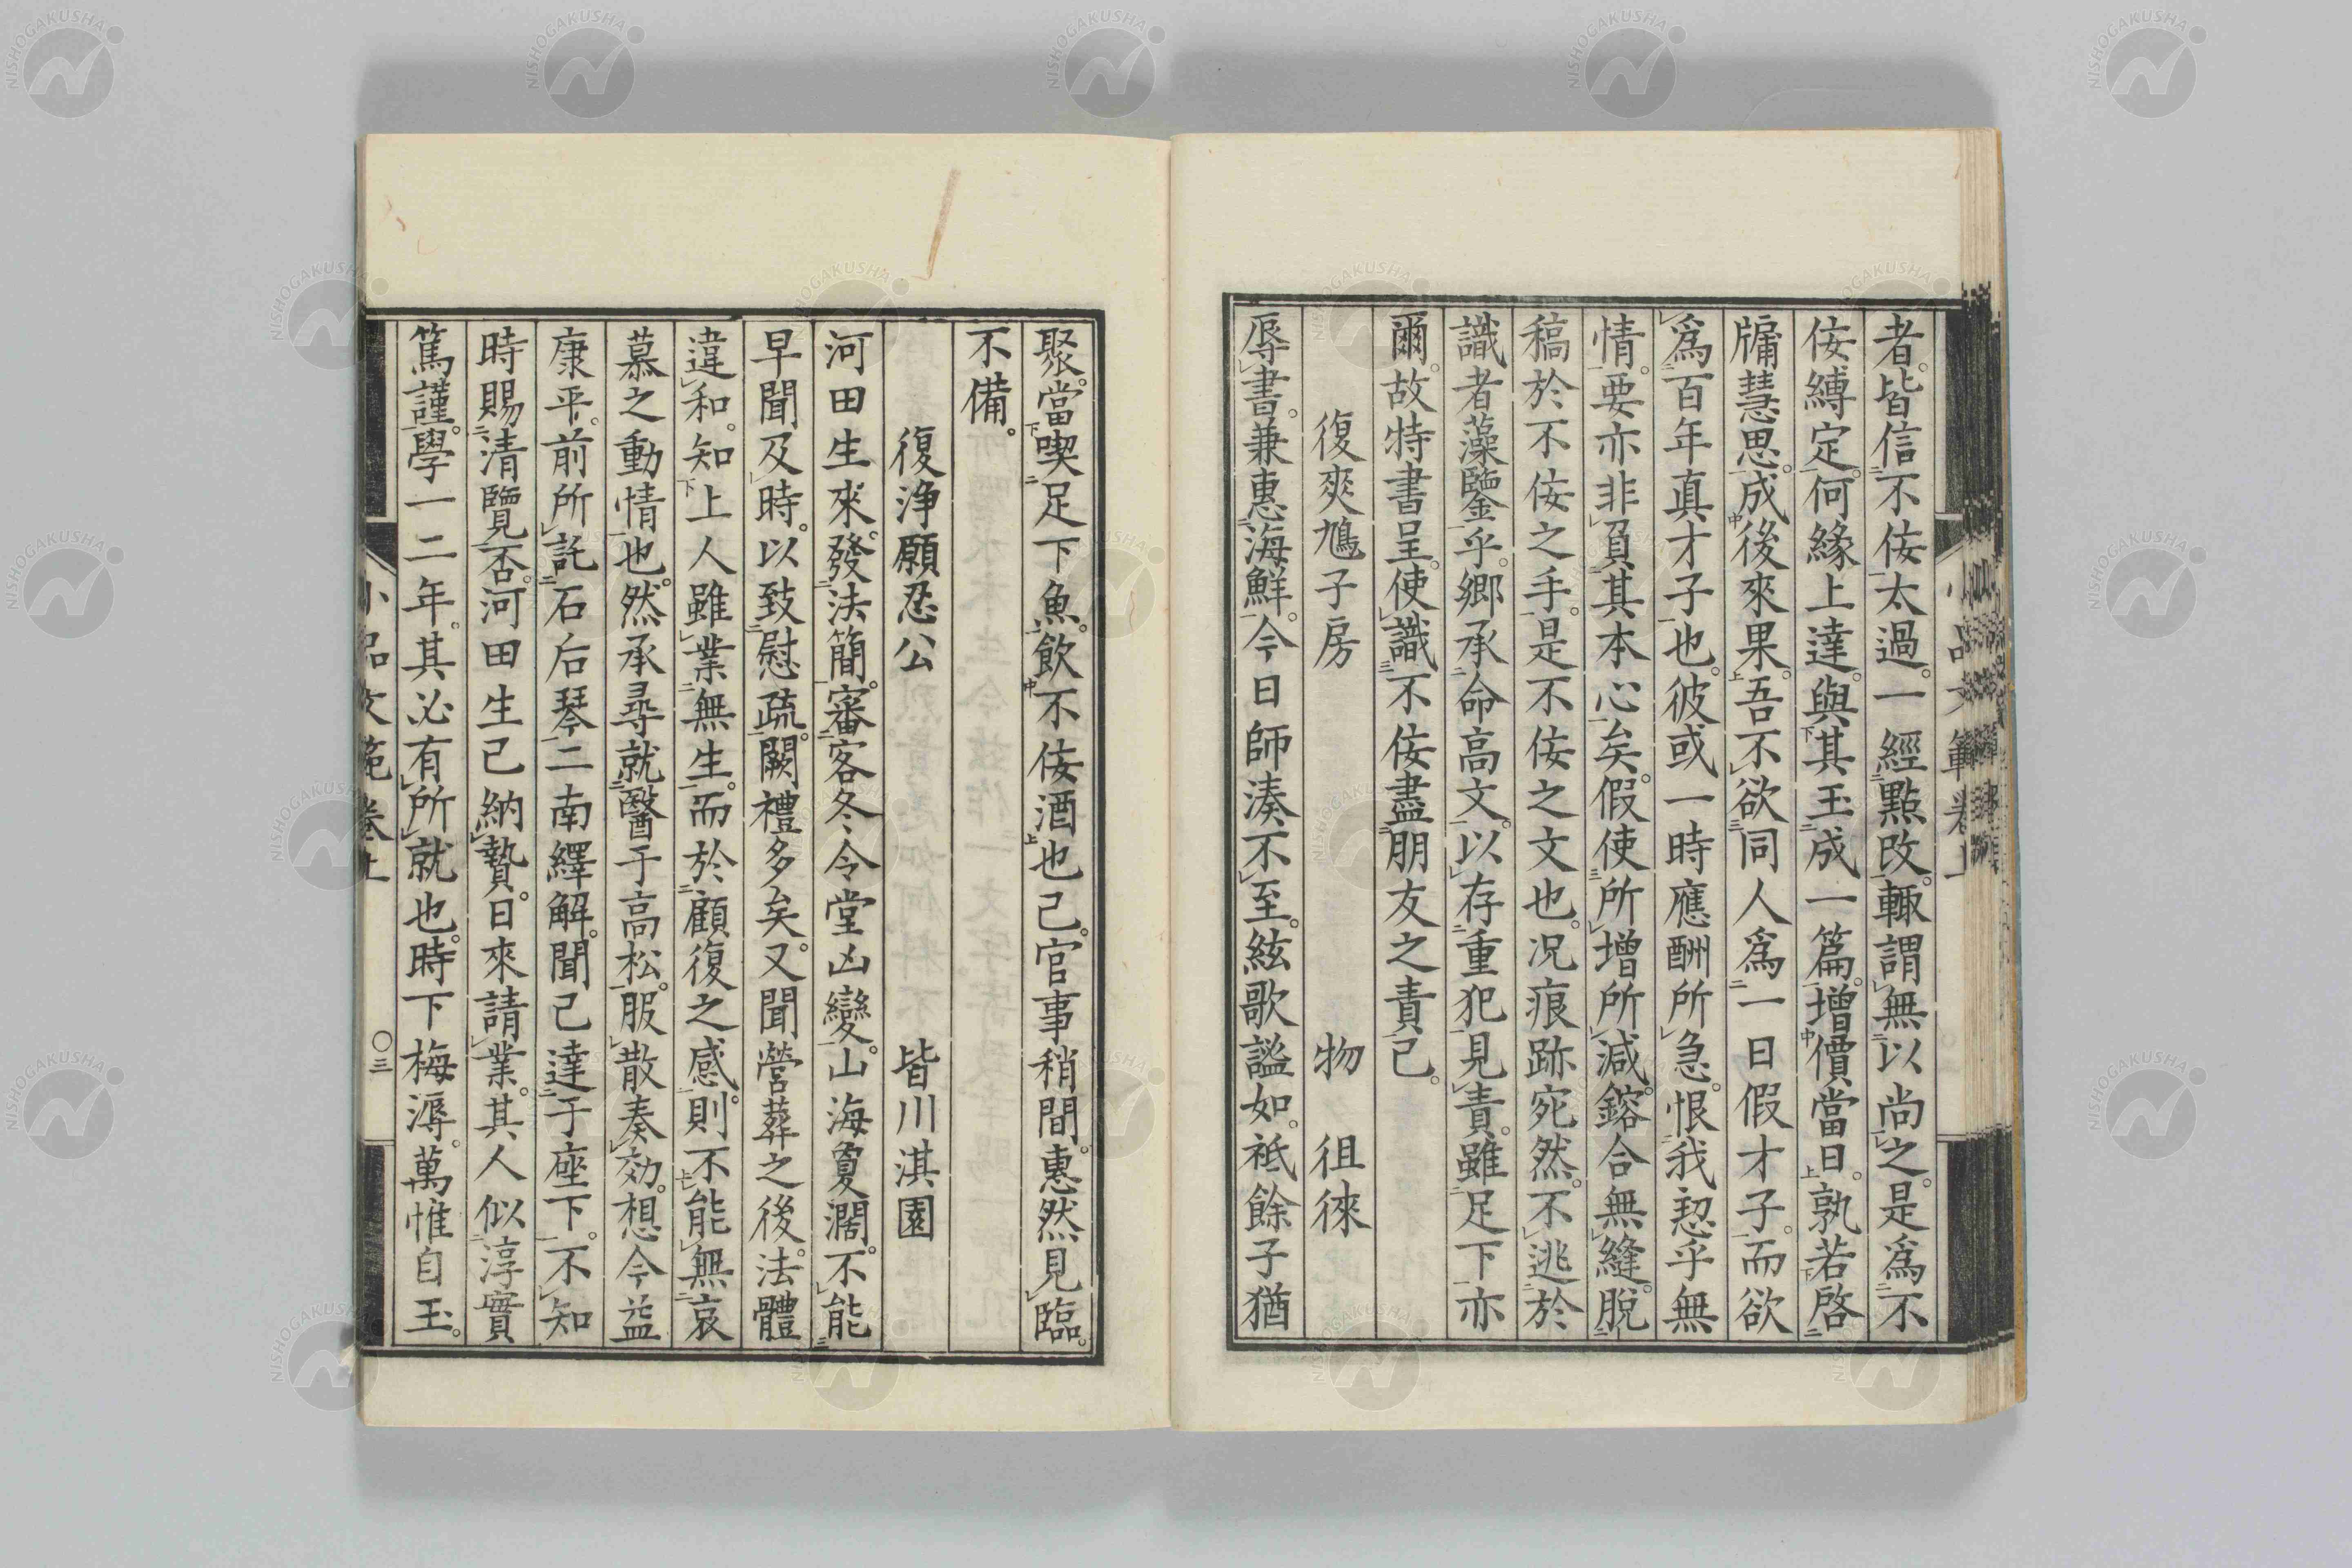 者。皆信不佞太過。一經點改。輙謂無以尚之。是爲不
佞縛定。何緣上達。與其玉成一篇。增價當日。孰若啓
牖慧思。成後來果。吾不欲同人爲一日假才子。而欲
爲百年真才子也。彼或一時應酬所急。恨我恝乎無
情。要亦非負其本心矣。假使所增所減。鎔合無縫。脫
稿於不佞之手。是不佞之文也。况痕跡宛然。不逃於
識者藻鑒乎。鄉承命高文。以存重犯見責。雖足下亦
爾。故特書呈。使識不佞盡朋友之責已。
復爽鳩子房 物徂徠
辱書。兼惠海鮮。今日師湊不至。絃歌謐如。祗餘子猶
聚。當喫足下魚。飲不佞酒也已。官事稍間。惠然見臨。
不備。
復浄願忍公 皆川淇園
河田生來。發法簡。審客冬令堂凶變。山海敻濶。不能
早聞及時。以致慰疏。闕禮多矣。又聞營葬之後。法體
違和。知上人雖業無生。而於顧復之感。則不能無哀
慕之動情也。然承尋就醫于高松。服散奏効。想今益
康平。前所託石后琴二南繹解。聞已達于座下。不知
時賜清覽否。河田生已納贄。日來請業。其人似淳實
篤謹。學一二年。其必有所就也。時下梅溽。萬惟自玉。
小品文範卷上
〇三
NISHOGAKUSHA